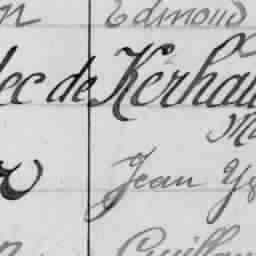 n Edmond
lec de Kerhau
Ma
r Jean Y
n Guillau